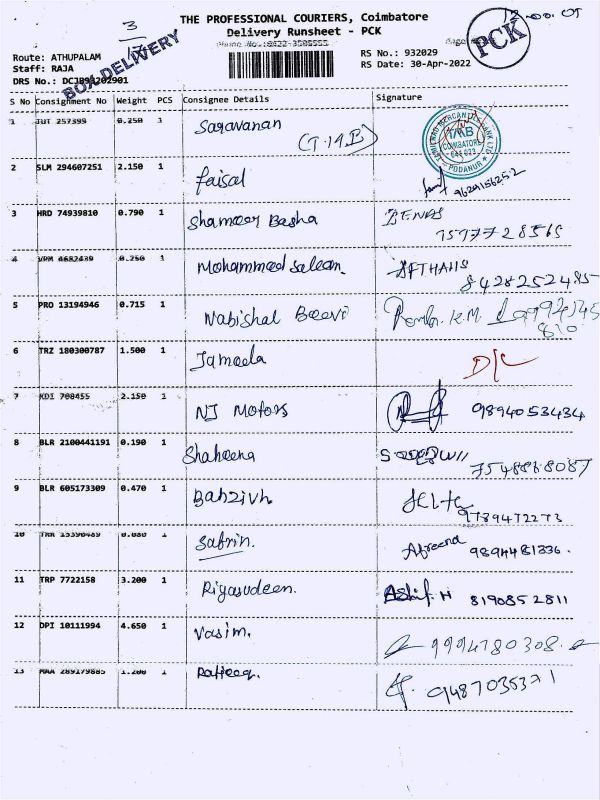 THE PROFESSIONAL COURIERS, Coimbatore
Delivery Runsheet - PCK
3
BOX DELIVERY
PCK
Route: ATHUPALAM
Staff: RAJA
RS No.: 932029
RS Date: 30-Apr-2022
S No Consignment No Weight PCS Consignee Details Signature
1 JUT 257399 0.250 1 Saravanan
TAMILNAD MERCANTILE BANK LTD TMB COIMBATORE 641 023 PODANUR
2 SLM 294607251 2.150 1 faisal 9629156252
3 HRD 74939810 0.790 1 Shameer Basha
4 VPM 4682439 0.250 1 Mohammed Saleem 8428252485
5 PRO 13194946 0.715 1 Nabishal Beevi
6 TRZ 180300787 1.500 1 Jameela D/C
7 KDI 708455 2.150 1 NJ Motors 9894053434
8 BLR 2100441191 0.190 1 Shaheena
9 BLR 605173309 0.470 1 9789472273
10 TRR 15390489 0.080 1 Sabrin Afreena 9894481336.
11 TRP 7722158 3.200 1 Riyasudeen. Ashif. H 8190852811
12 DPI 10111994 4.650 1 Vasim. 9994780308
13 MAA 289179885 1.200 1 Rafeeq.